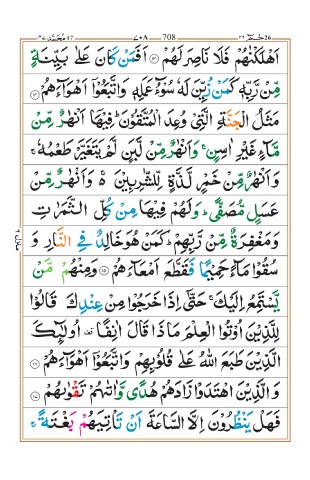 حٰمٓ ٢٦ 708 ٧٠٨ مُحَمَّد ٤٧
اَهْلَكْنٰهُمْ فَلَا نَاصِرَ لَهُمْ ۝١٣ اَفَمَنْ كَانَ عَلٰى بَيِّنَةٍ
مِّنْ رَّبِّهٖ كَمَنْ زُيِّنَ لَهٗ سُوْٓءُ عَمَلِهٖ وَاتَّبَعُوْٓا اَهْوَآءَهُمْ ۝١٤
مَثَلُ الْجَنَّةِ الَّتِيْ وُعِدَ الْمُتَّقُوْنَ ؕ فِيْهَآ اَنْهٰرٌ مِّنْ
مَّآءٍ غَيْرِ اٰسِنٍ ۚ وَاَنْهٰرٌ مِّنْ لَّبَنٍ لَّمْ يَتَغَيَّرْ طَعْمُهٗ ۚ
وَاَنْهٰرٌ مِّنْ خَمْرٍ لَّذَّةٍ لِّلشّٰرِبِيْنَ ۚ۬ وَاَنْهٰرٌ مِّنْ
عَسَلٍ مُّصَفًّى ؕ وَلَهُمْ فِيْهَا مِنْ كُلِّ الثَّمَرٰتِ
وَمَغْفِرَةٌ مِّنْ رَّبِّهِمْ ؕ كَمَنْ هُوَ خَالِدٌ فِي النَّارِ وَ
سُقُوْا مَآءً حَمِيْمًا فَقَطَّعَ اَمْعَآءَهُمْ ۝١٥ وَمِنْهُمْ مَّنْ
يَّسْتَمِعُ اِلَيْكَ ۚ حَتّٰىٓ اِذَا خَرَجُوْا مِنْ عِنْدِكَ قَالُوْا
لِلَّذِيْنَ اُوْتُوا الْعِلْمَ مَاذَا قَالَ اٰنِفًا ۫ اُولٰٓئِكَ
الَّذِيْنَ طَبَعَ اللّٰهُ عَلٰى قُلُوْبِهِمْ وَاتَّبَعُوْٓا اَهْوَآءَهُمْ ۝١٦
وَالَّذِيْنَ اهْتَدَوْا زَادَهُمْ هُدًى وَّاٰتٰىهُمْ تَقْوٰىهُمْ ۝١٧
فَهَلْ يَنْظُرُوْنَ اِلَّا السَّاعَةَ اَنْ تَاْتِيَهُمْ بَغْتَةً ۚ